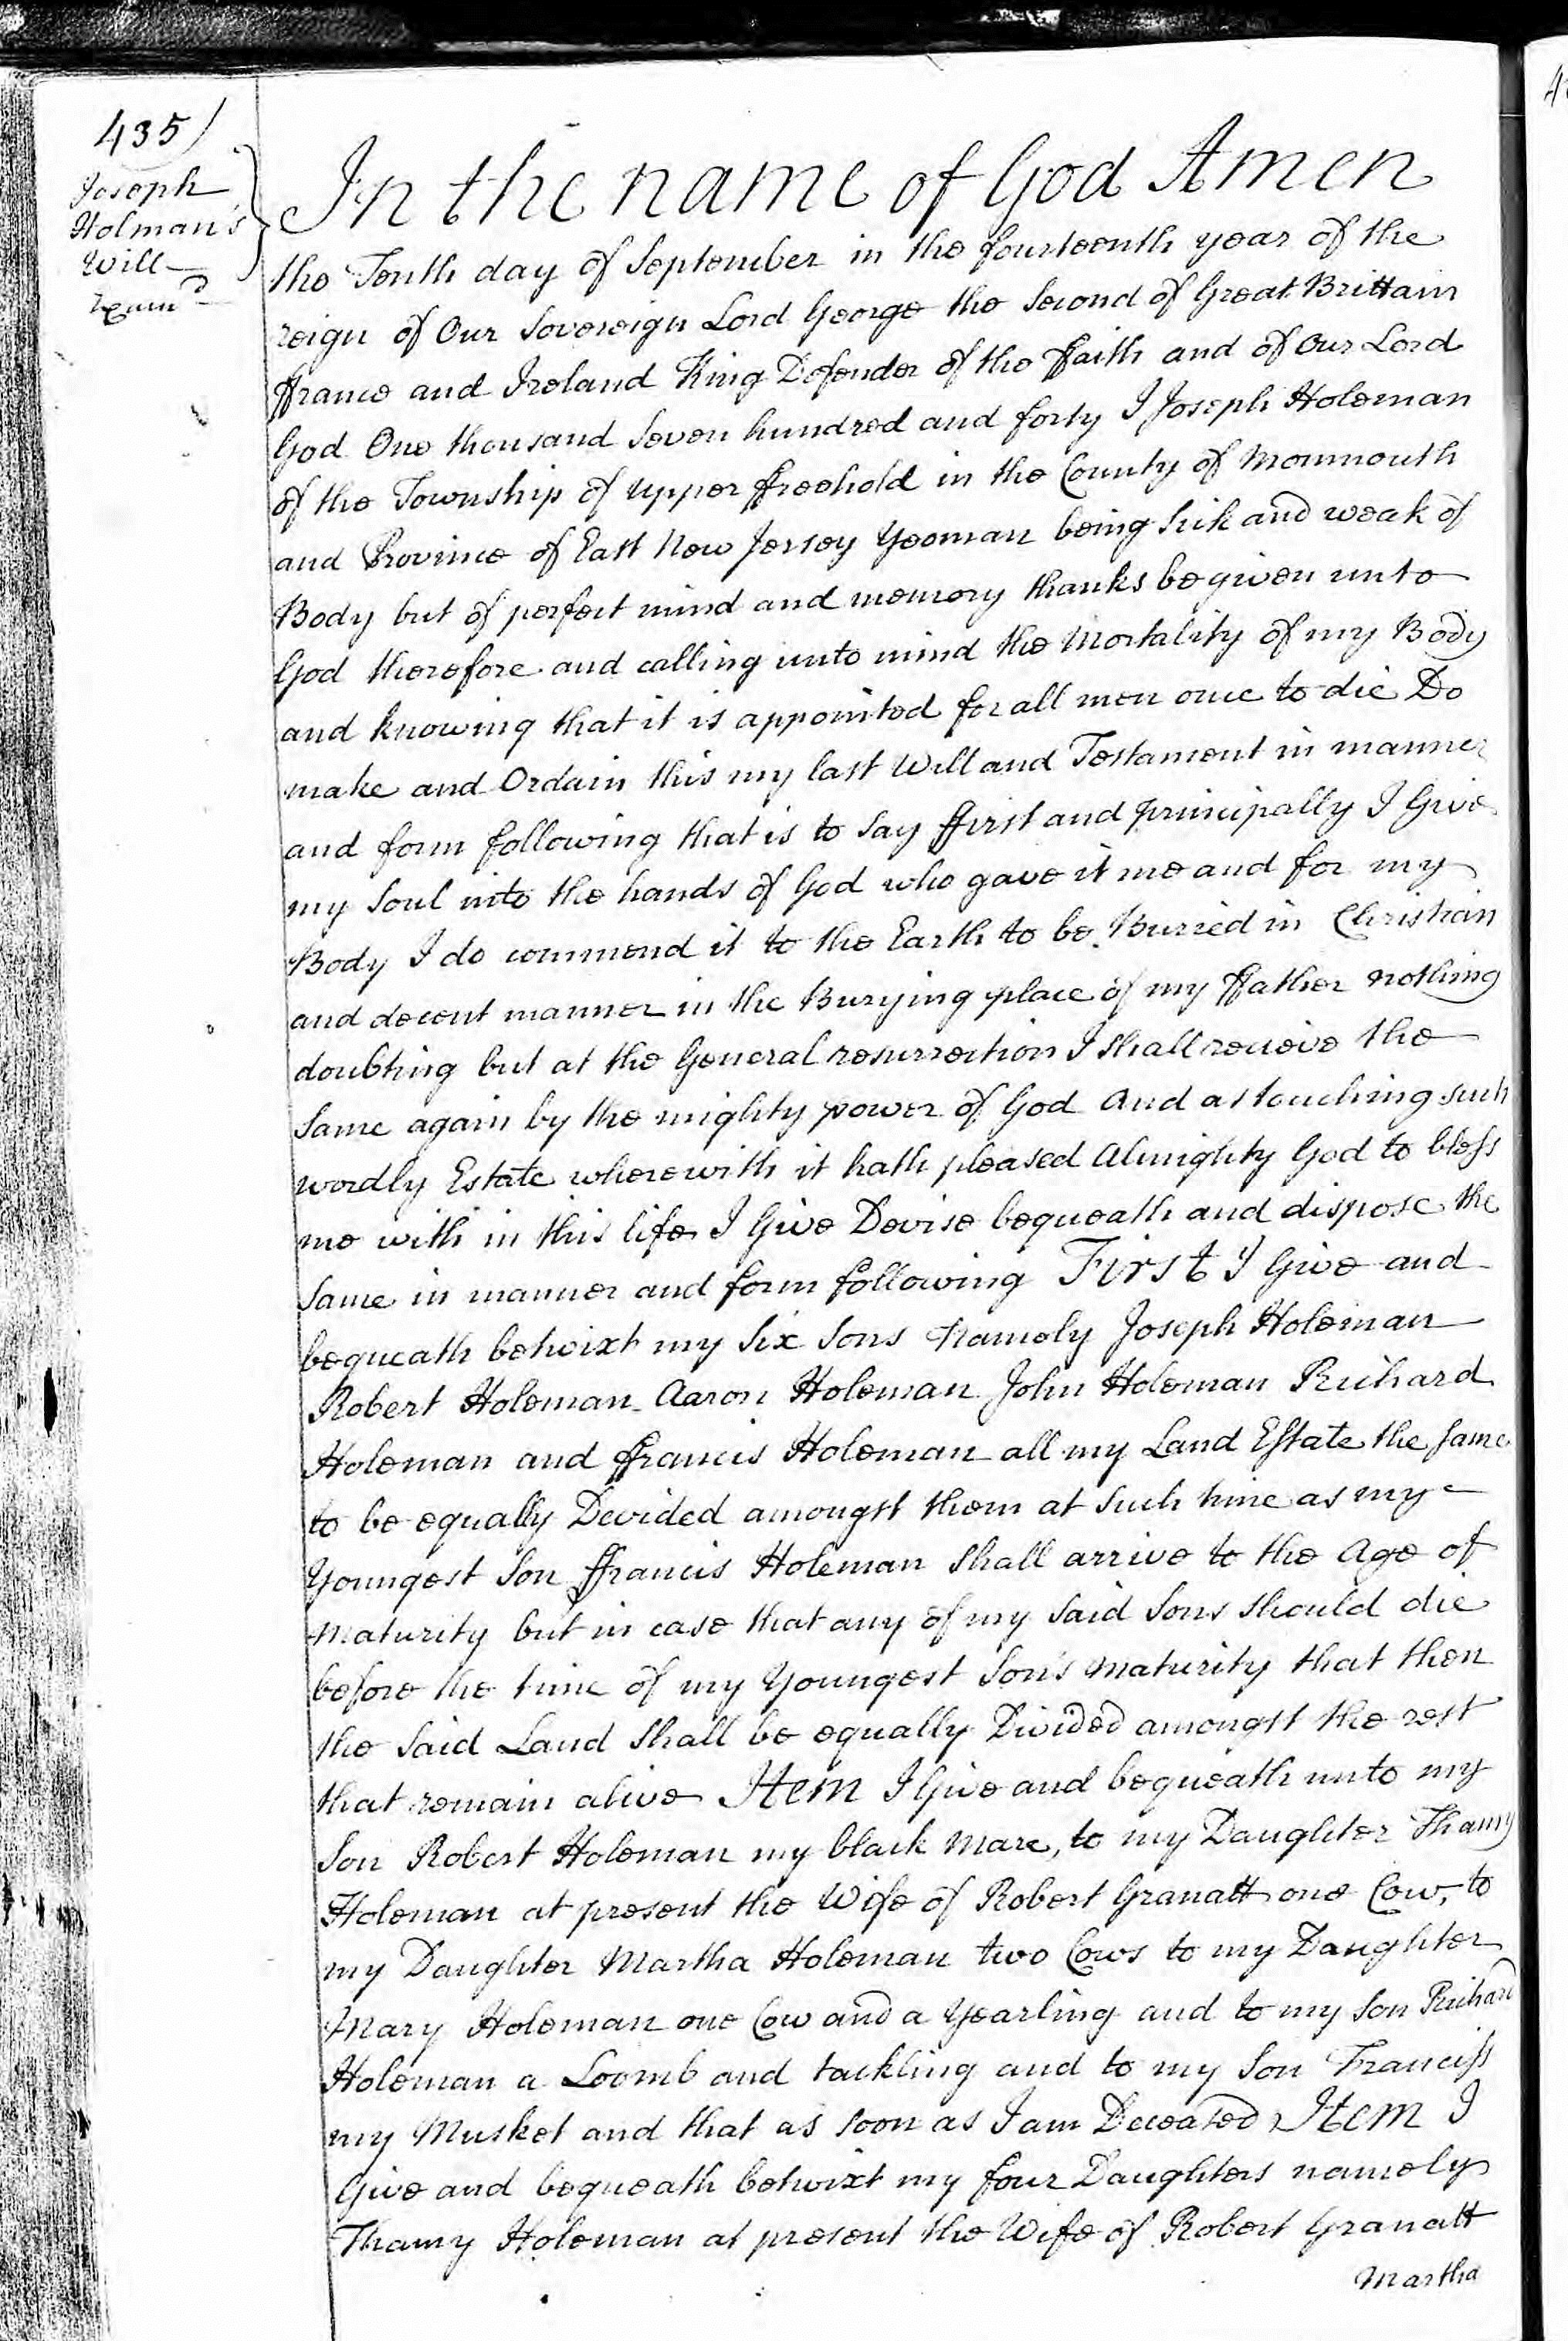 435
Joseph
Holman's
Will
Exam.d
In the name of God Amen
the Tenth day of September in the fourteenth year of the
reign of Our Sovereign Lord George the Second of Great Brittain
ffrance and Ireland King Defender of the ffaith and of Our Lord
God One thousand Seven hundred and forty I Joseph Holeman
of the Township of upper ffreehold in the County of Monmouth
and Province of East New Jersey Yeoman being Sick and weak of
Body but of perfect mind and memory thanks be given unto
God therefore and calling unto mind the Mortality of my Body
and knowing that it is appointed for all men once to die Do
make and Ordain this my last Will and Testament in manner
and form following that is to Say ffirst and principally I Give
my Soul into the hands of God who gave it me and for my
Body I do commend it to the Earth to be Burried in Christian
and decent manner in the Burying place of my ffather nothing
doubting but at the General resurrection I shall receive the
Same again by the mighty power of God And as touching such
wordly Estate wherewith it hath pleased Almighty God to bless
me with in this life I Give Devise bequeath and dispose the
Same in manner and form following First I Give and
bequeath betwixt my Six Sons Namely Joseph Holeman
Robert Holeman Aaron Holeman John Holeman Richard
Holeman and ffrancis Holeman all my Land Estate the same
to be equally Devided amongst them at Such time as my
Youngest Son ffrancis Holeman Shall arrive to the Age of
Maturity but in case that any of my Said Sons should die
before the time of my Youngest Son's Maturity that then
the Said Land Shall be equally Divided amongst the rest
that remain alive Item I Give and bequeath unto my
Son Robert Holeman my black Mare, to my Daughter Thamy
Holeman at present the Wife of Robert Granatt one Cow, to
my Daughter Martha Holeman two Cows to my Daughter
Mary Holeman one Cow and a Yearling and to my Son Richard
Holeman a Loomb and tackling and to my Son Franciss
my Musket and that as Soon as I am Deceased Item I
Give and bequeath betwixt my four Daughters namely
Thamy Holeman at present the Wife of Robert Granatt
Martha